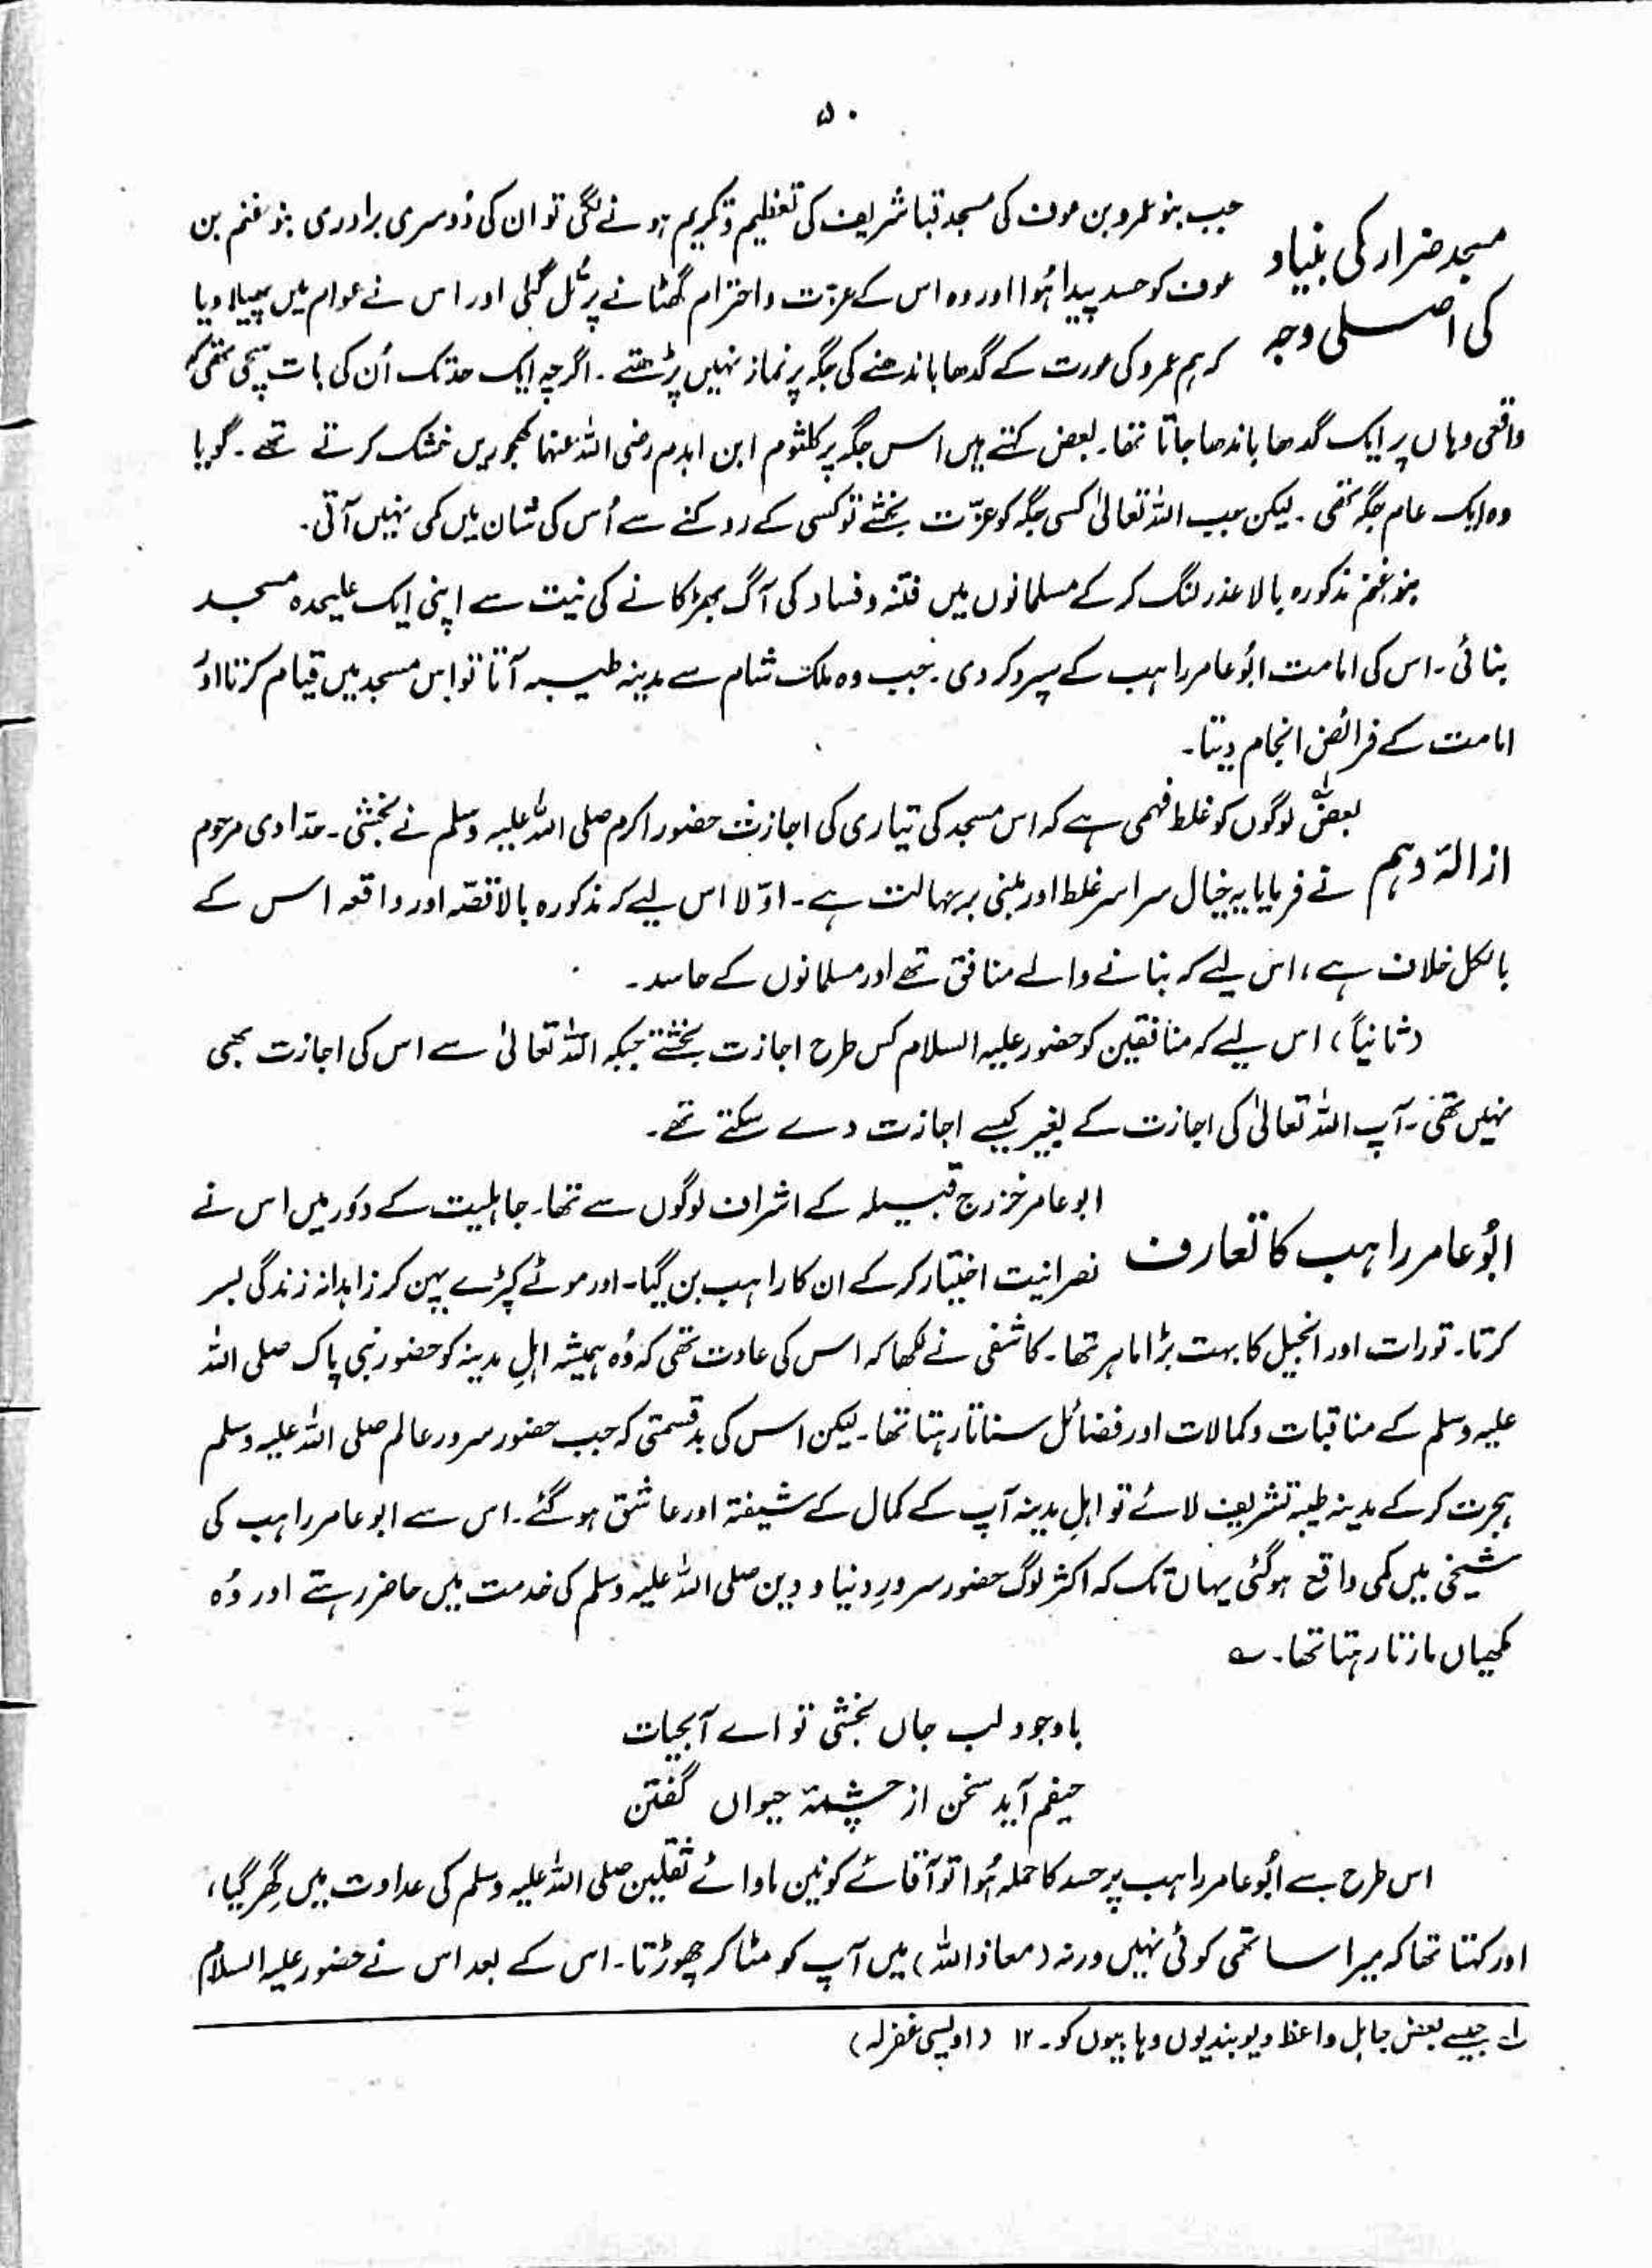 ۵۰
مسجد ضرار کی بنیاد
کی اصلی وجہ
جب بنو عمرو بن عوف کی مسجد قبا شریف کی تعظیم و تکریم ہونے لگی تو ان کی دُوسری برادری بنو غنم بن
عوف کو حسد پیدا ہُوا اور وہ اس کے عزّت و احترام گھٹانے پر تُل گئی اور اس نے عوام میں پھیلا دیا
کہ ہم عمرو کی عورت کے گدھا باندھنے کی جگہ پر نماز نہیں پڑھتے ۔ اگرچہ ایک حد تک اُن کی بات سچی تھی کہ
واقعی وہاں پر ایک گدھا باندھا جاتا تھا۔ بعض کہتے ہیں اس جگہ پر کلثوم ابن اہدم رضی اللہ عنہما کھجوریں خشک کرتے تھے ۔ گویا
وہ ایک عام جگہ تھی ۔ لیکن جب اللہ تعالیٰ کسی جگہ کو عزّت بخشے تو کسی کے روکنے سے اُس کی شان میں کمی نہیں آتی۔
بنو غنم مذکورہ بالا عذر لنگ کر کے مسلمانوں میں فتنہ و فساد کی آگ بھڑکانے کی نیت سے اپنی ایک علیحدہ مسجد
بنائی ۔ اس کی امامت ابُو عامر راہب کے سپرد کر دی ۔ جب وہ ملک شام سے مدینہ طیبہ آتا تو اس مسجد میں قیام کرتا اور
امامت کے فرائض انجام دیتا۔
ازالۂ وہم
بعض لہ لوگوں کو غلط فہمی ہے کہ اس مسجد کی تیاری کی اجازت حضور اکرم صلی اللہ علیہ وسلم نے بخشی ۔ حدادی مرحوم
نے فرمایا یہ خیال سراسر غلط اور مبنی بر جہالت ہے ۔ اوّلا اس لیے کہ مذکورہ بالا قصّہ اور واقعہ اس کے
بالکل خلاف ہے ، اس لیے کہ بنانے والے منافق تھے اور مسلمانوں کے حاسد ۔
(ثانیاً) اس لیے کہ منافقین کو حضور علیہ السلام کس طرح اجازت بخشتے جبکہ اللہ تعالیٰ سے اس کی اجازت بھی
نہیں تھی ۔ آپ اللہ تعالیٰ کی اجازت کے بغیر کیسے اجازت دے سکتے تھے ۔
ابُو عامر راہب کا تعارف
ابو عامر خزرج قبیلہ کے اشراف لوگوں سے تھا۔ جاہلیت کے دَور میں اس نے
نصرانیت اختیار کر کے ان کا راہب بن گیا۔ اور موٹے کپڑے پہن کر زاہدانہ زندگی بسر
کرتا۔ تورات اور انجیل کا بہت بڑا ماہر تھا۔ کاشفی نے لکھا کہ اس کی عادت تھی کہ وُہ ہمیشہ اہلِ مدینہ کو حضور نبی پاک صلی اللہ
علیہ وسلم کے مناقبات و کمالات اور فضائل سناتا رہتا تھا۔ لیکن اس کی بدقسمتی کہ جب حضور سرور عالم صلی اللہ علیہ وسلم
ہجرت کر کے مدینہ طیبہ تشریف لائے تو اہلِ مدینہ آپ کے کمال کے شیفتہ اور عاشق ہو گئے ۔ اس سے ابو عامر راہب کی
شیخی میں کمی واقع ہو گئی یہاں تک کہ اکثر لوگ حضور سرورِ دنیا و دین صلی اللہ علیہ وسلم کی خدمت میں حاضر رہتے اور وُہ
مکھیاں مارتا رہتا تھا۔ ؎
باوجود لب جاں بخشی تو اے آبحیات
حیفم آید سخن از چشمۂ حیواں گفتن
اس طرح سے ابُو عامر راہب پر حسد کا حملہ ہُوا تو آقائے کونین ماوائے ثقلین صلی اللہ علیہ وسلم کی عداوت میں گھر گیا ،
اور کہتا تھا کہ میرا ساتھی کوئی نہیں ورنہ (معاذ اللہ) میں آپ کو مٹا کر چھوڑتا۔ اس کے بعد اس نے حضور علیہ السلام
لہ جیسے بعض جاہل واعظ دیوبندیوں وہابیوں کو ۔ ۱۲ (اویسی غفرلہ)